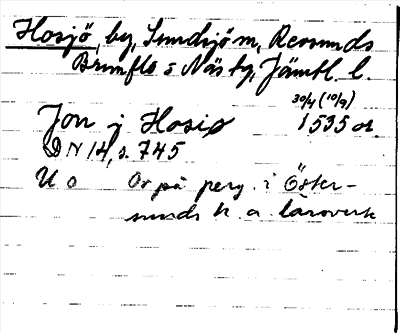 Hosjö, by, Sundsjö m, Revsunds
Brunflo o Näs tg, Jämtl. l.
30/4 (10/9)
Jon j Hosiø 1535 or.
DN 14, s. 745
U o Or på perg. i Öster-
sunds h. a. läroverk